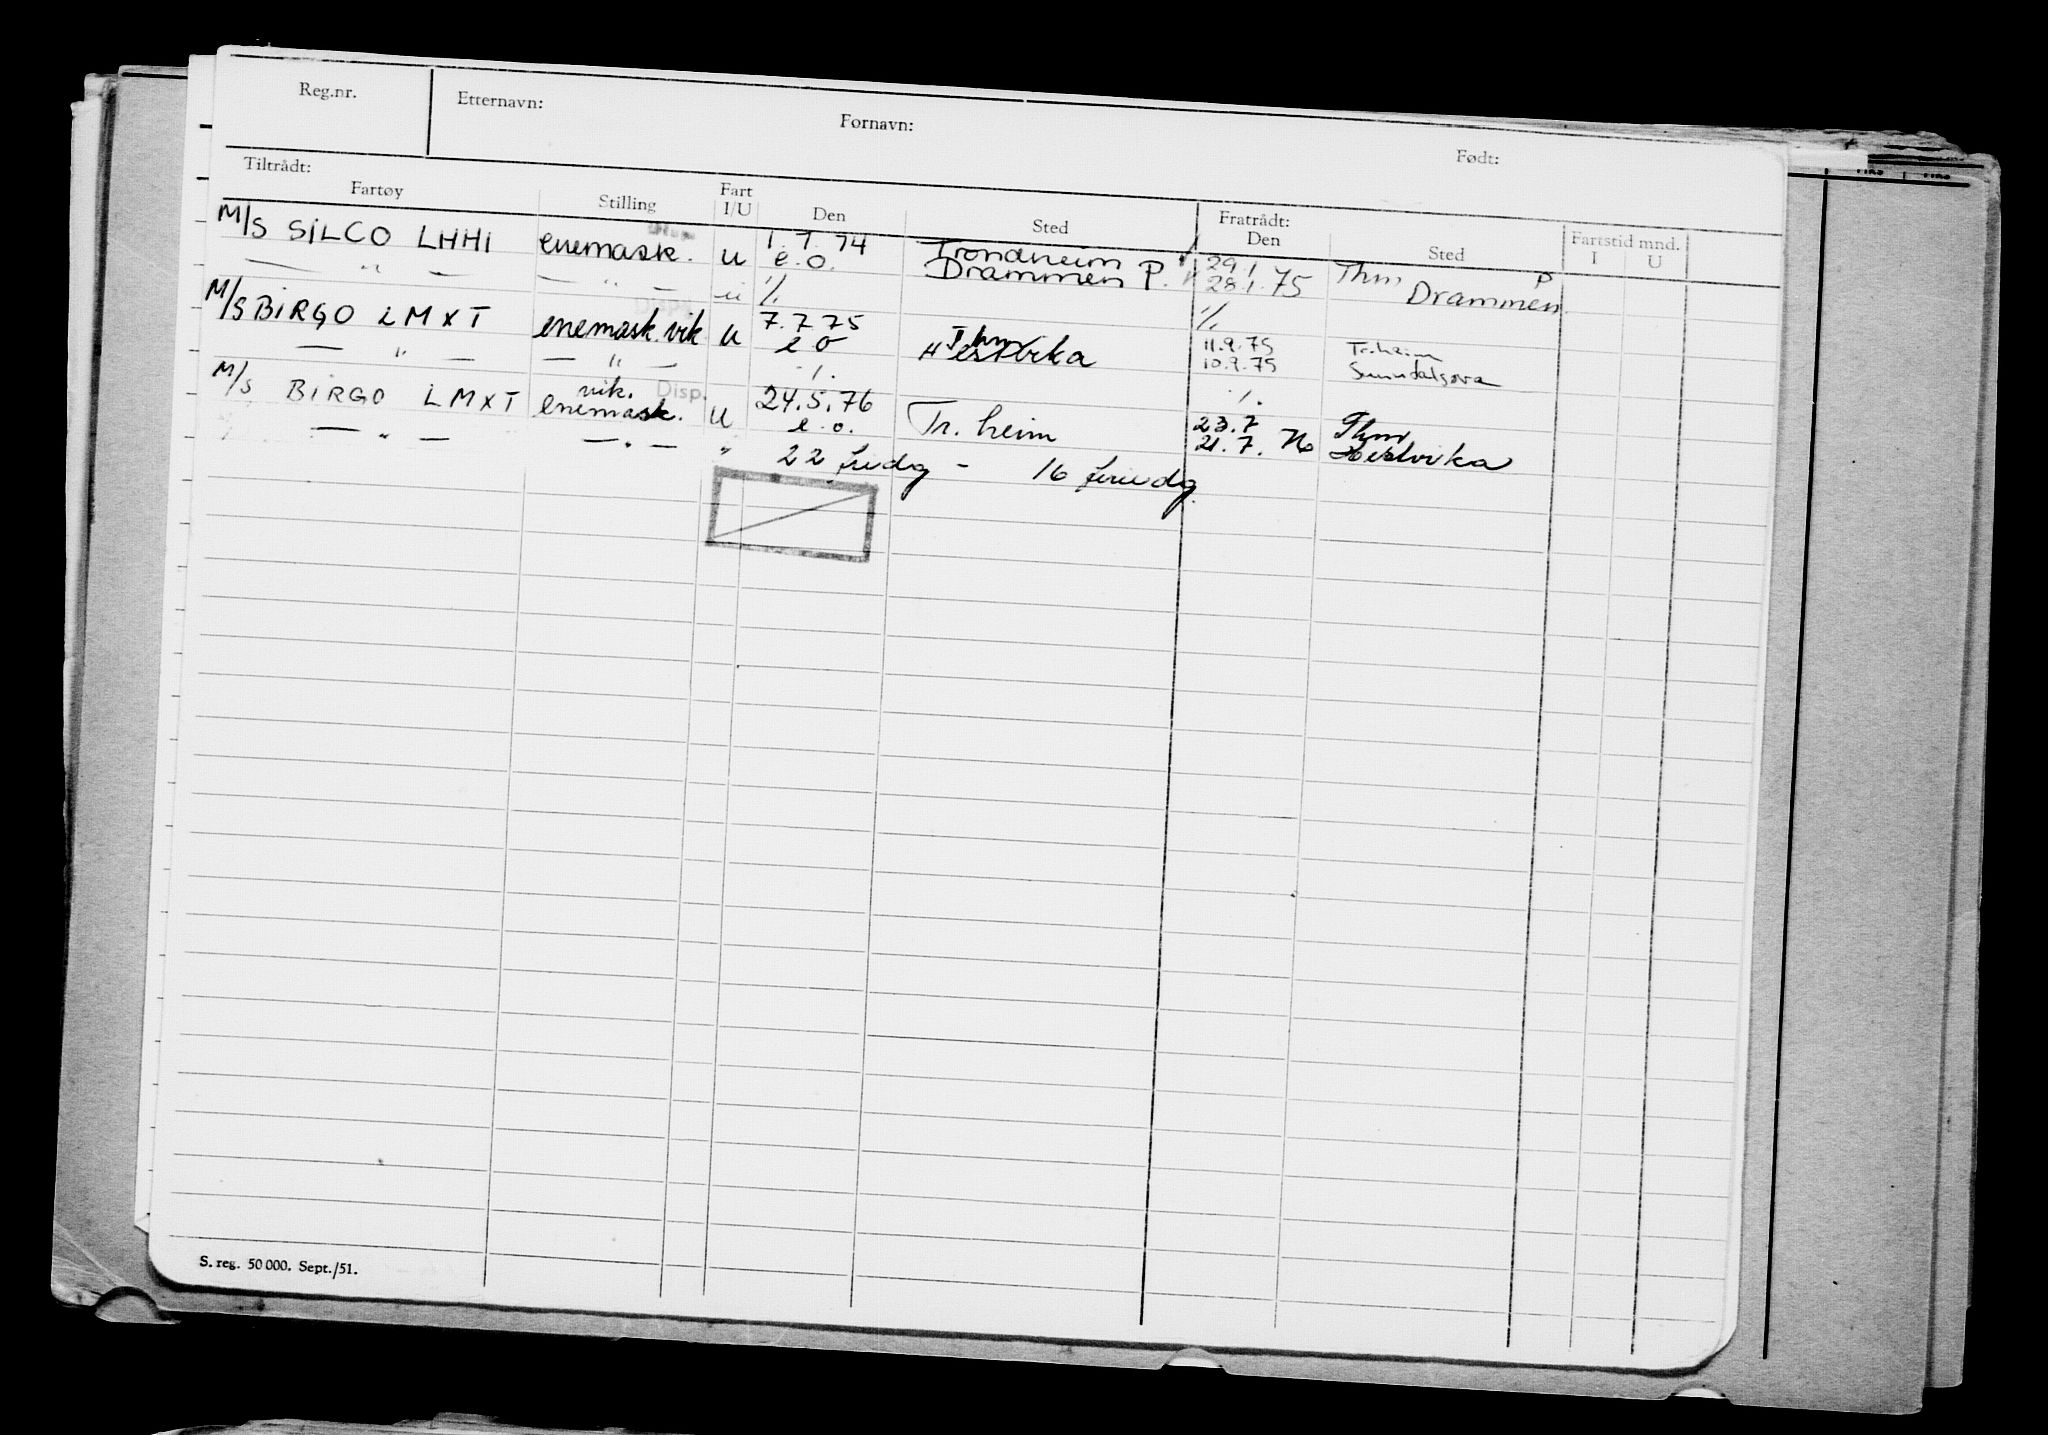 Reg.nr. Etternavn: Fornavn: Født:
Tiltrådt: Fratrådt:
Fartøy Stilling Fart I/U Den Sted Den Sted Fartstid mnd. I U
M/S SILCO LHHI enemask. u 1.7.74 Trondheim 29.1 Thm P
— " — — " — u e.o. Drammen P. 28.1.75 Drammen
·/. ·/.
M/S BIRGO LMXT enemask. vik Disp. u 7.7.75 Thm 11.9.75 Tr.heim
— " — — " — e o Hestvika 10.9.75 Sunndalsøra
·/. ·/.
M/S BIRGO LMXT vik. enemask. Disp. u 24.5.76 Tr.heim 23.7 Thm
— " — — " — " e.o. 21.7.76 Hestvika
22 fridg - 16 feriedg.
S. reg. 50 000. Sept./51.